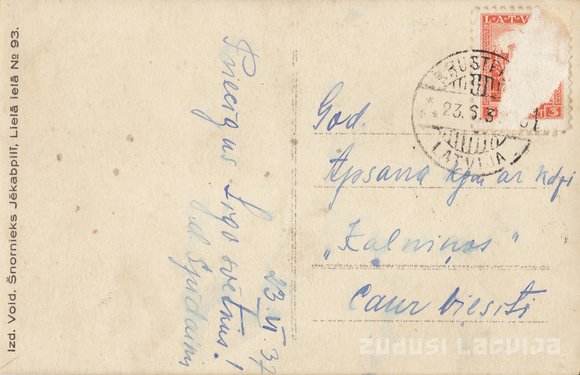 Izd. Vold. Šnornieks Jēkabpilī, Lielā ielā № 93.
Priecīgus Līgo svētkus!
23 VI 37
LATV
KRUSTP
23. 6. 3
LATVIJA
God.
Apsana kgm ar kdzi
„Kalniņos"
Caur Viesīti
zudusi Latvija